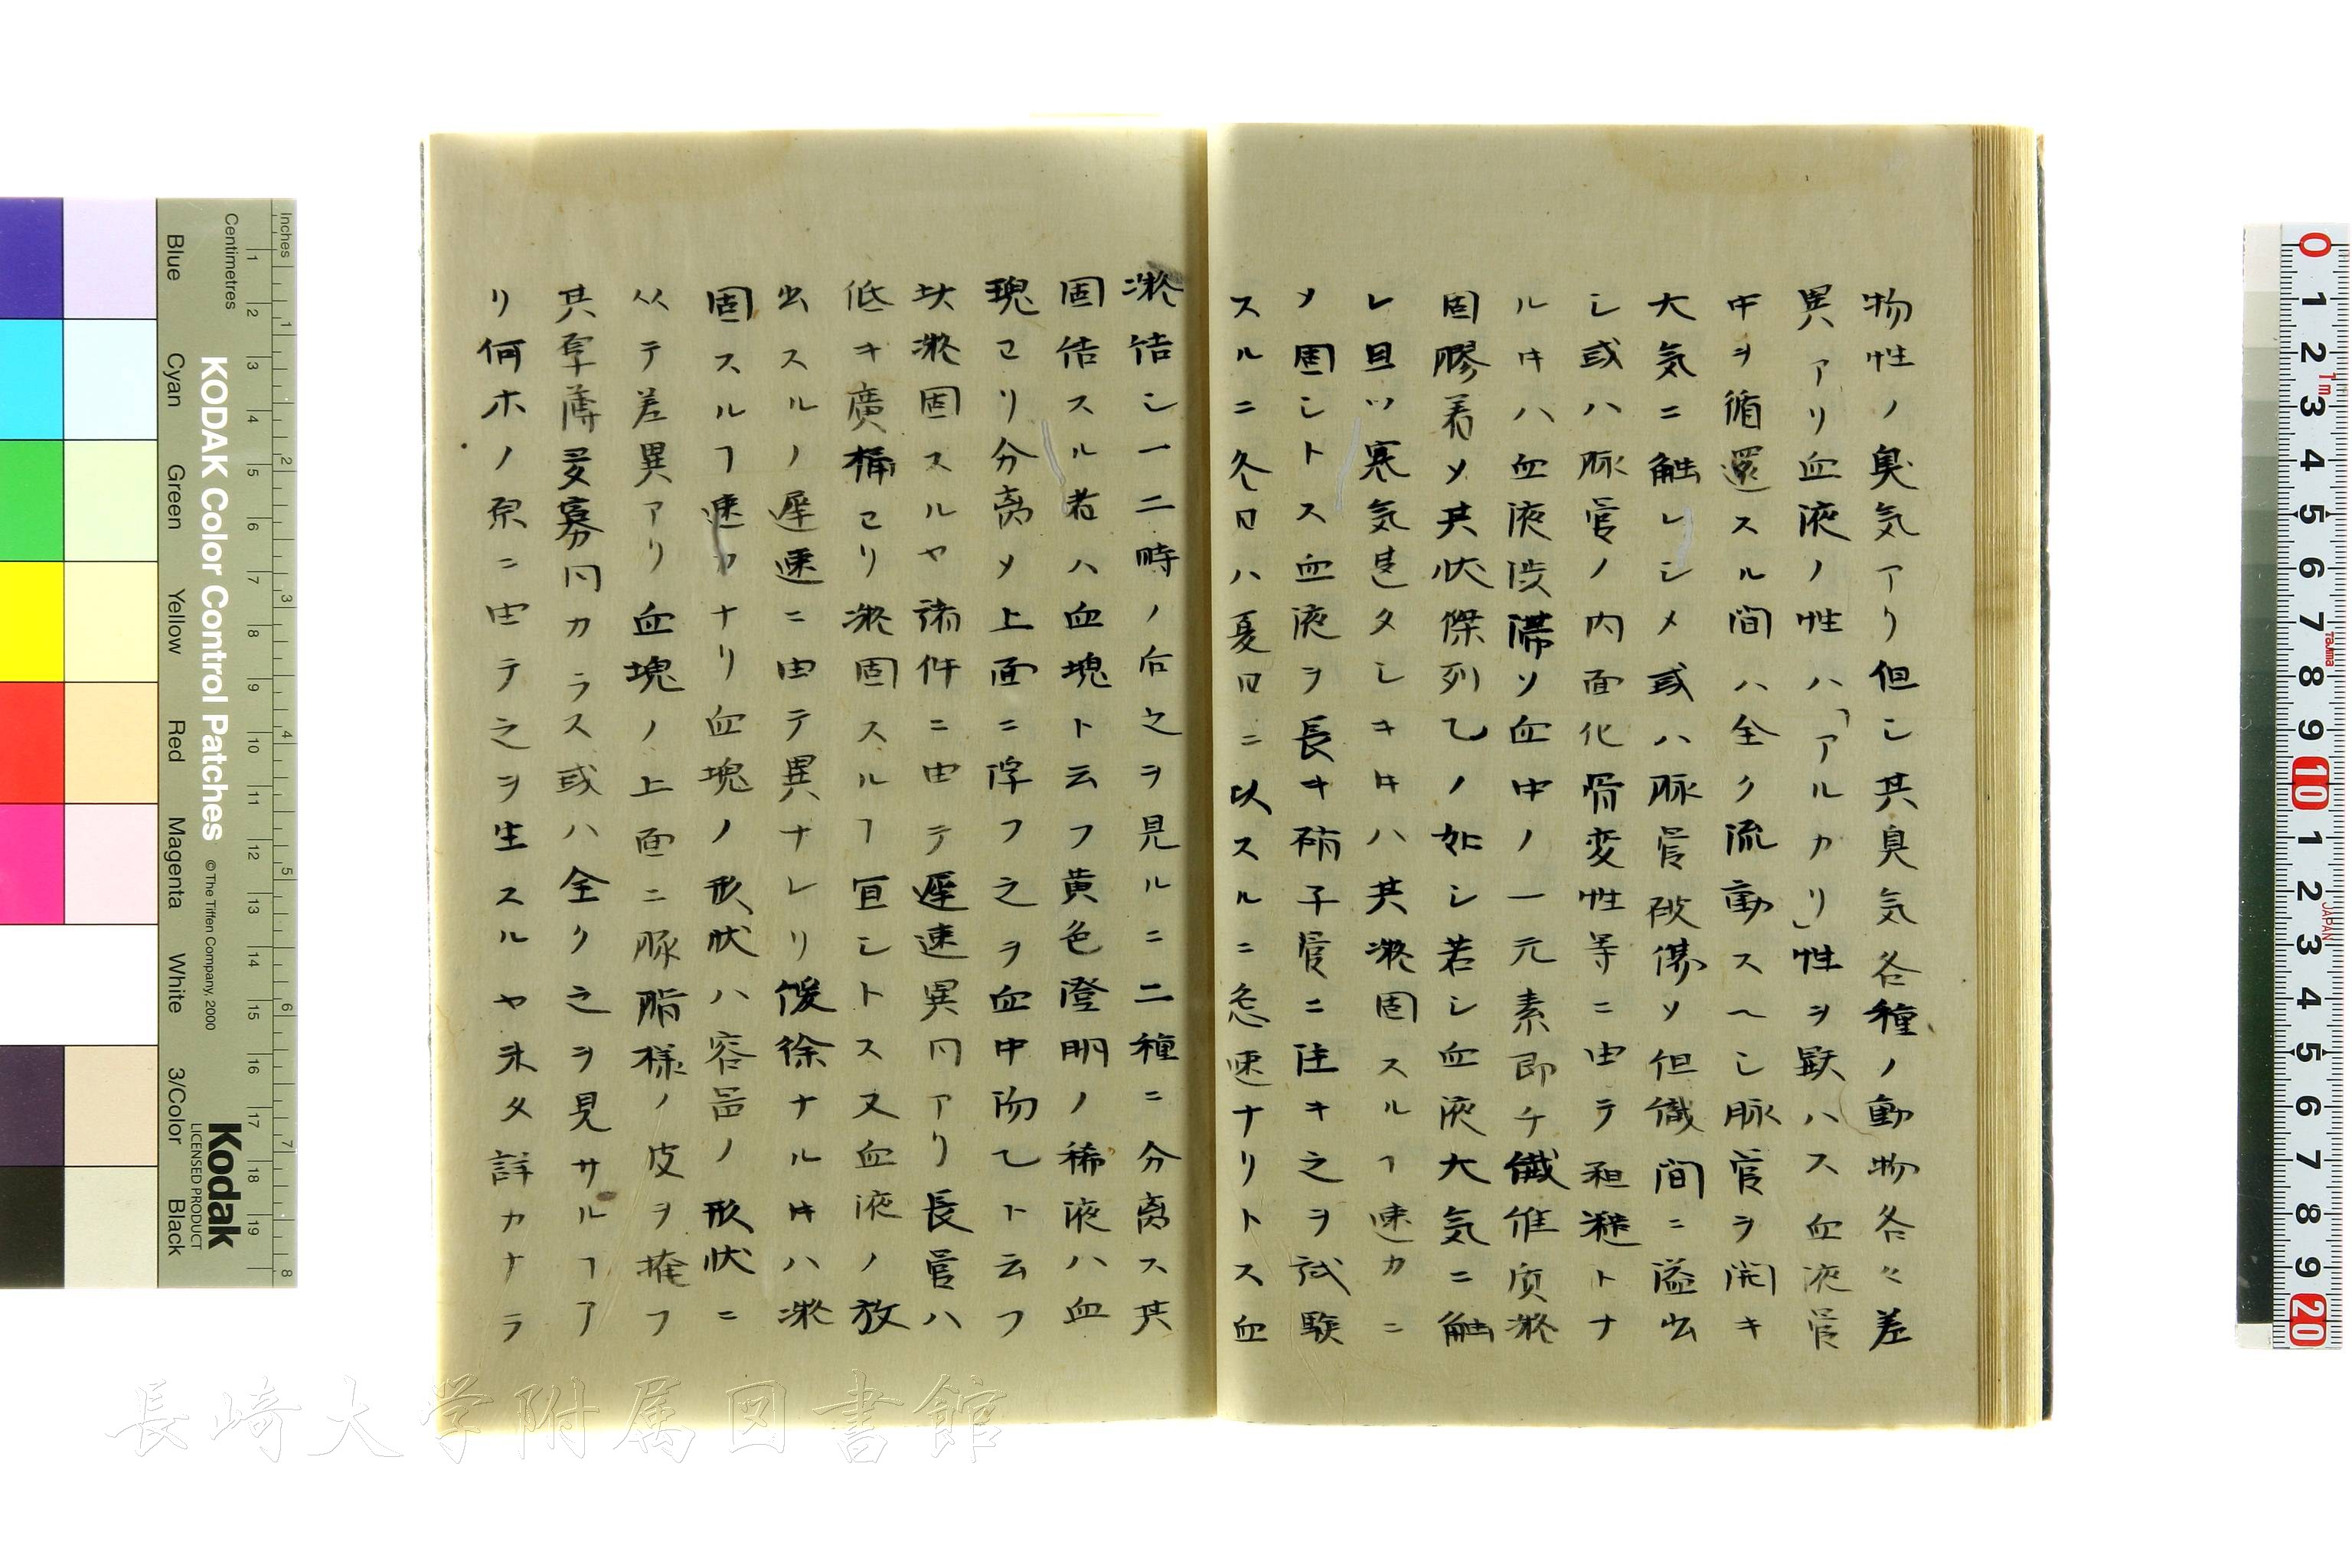 物性ノ臭気アリ但シ其臭気各種ノ動物各々差
異アリ血液ノ性ハ「アルカリ」性ヲ顕ハス血液管
中ヲ循還スル間ハ全ク流動スヘシ脉管ヲ開キ
大気ニ触レシメ或ハ脉管破傷ソ但織間ニ溢出
シ或ハ脉管ノ内面化骨変性等ニ由テ粗糙トナ
ルキハ血液渋滞ソ血中ノ一元素即チ繊維质凝
固膠着ソ其状傑列乙ノ如シ若シ血液大気ニ触
レ且ツ寒気甚タシキキハ其凝固スルヿ速カニ
ソ固シトス血液ヲ長キ硝子管ニ注キ之ヲ試験
スルニ冬日ハ夏日ニ以スルニ急速ナリトス血
凝结シ一二時ノ后之ヲ見ルニ二種ニ分离ス其
固结スル者ハ血塊ト云フ黄色澄明ノ稀液ハ血
塊ヨリ分离ソ上面ニ浮フ之ヲ血中吻乙ト云フ
抑凝固スルヤ諸件ニ由テ遅速異同アリ長管ハ
低キ廣桶ヨリ凝固スルヿ宜シトス又血液ノ放
出スルノ遅速ニ由テ異ナレリ緩徐ナルキハ凝
固スルヿ速カナリ血塊ノ形状ハ容器ノ形状ニ
从テ差異アリ血塊ノ上面ニ豚脂様ノ皮ヲ掩フ
其厚薄多寡同カラス或ハ全ク之ヲ見サルヿア
リ何ホノ原ニ由テ之ヲ生スルヤ未タ詳カナラ
KODAK Color Control Patches
© The Tiffen Company, 2000
Kodak
LICENSED PRODUCT
Inches
Centimetres
Blue
Cyan
Green
Yellow
Red
Magenta
White
3/Color
Black
長崎大学附属図書館